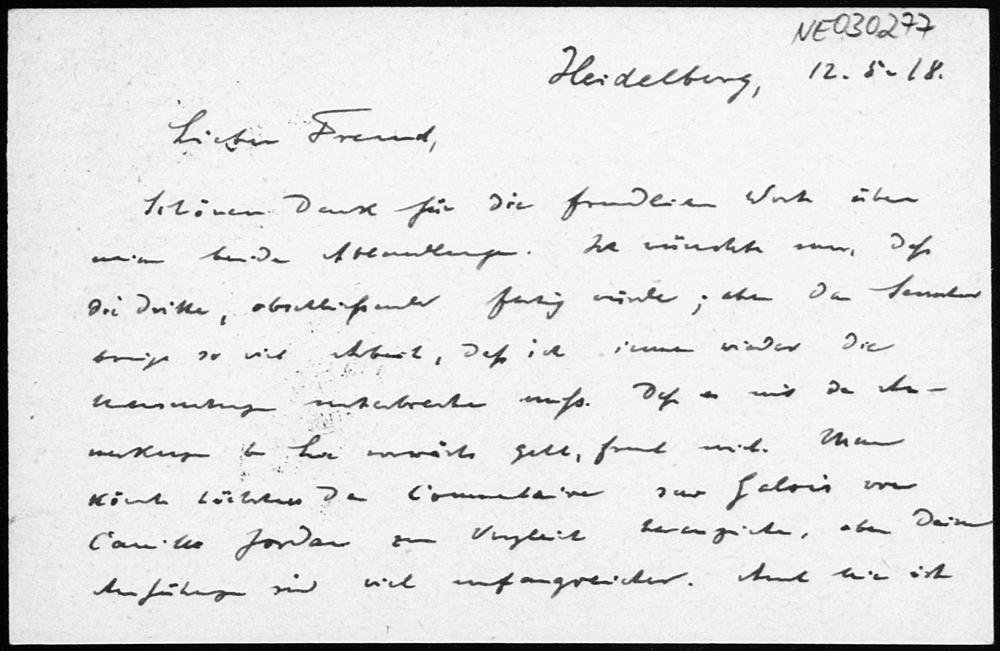 NE030277
Heidelberg, 12. 5. 18.
Lieber Freund,
Schönen Dank für die freundlichen Worte über
meine beiden Abhandlungen. Ich wünschte nur, daß
die dritte, abschließende fertig würde; aber das Semester
bringt so viel Arbeit, daß ich immer wieder die
unterbrechen muß. Daß es mit den An-
merkungen vorwärts geht, freut mich. Man
könnte höchstens den Commentaire sur Galois von
Camille Jordan zum Vergleich heranziehen, aber Deine
Ausführungen sind viel umfangreicher. Auch hier ist